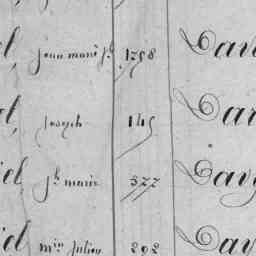 l, jean marie j.h 1798 Dav
l, joseph 145 Dar
iel j.h marie 377 Davy
iel m.in Julien 202 Day